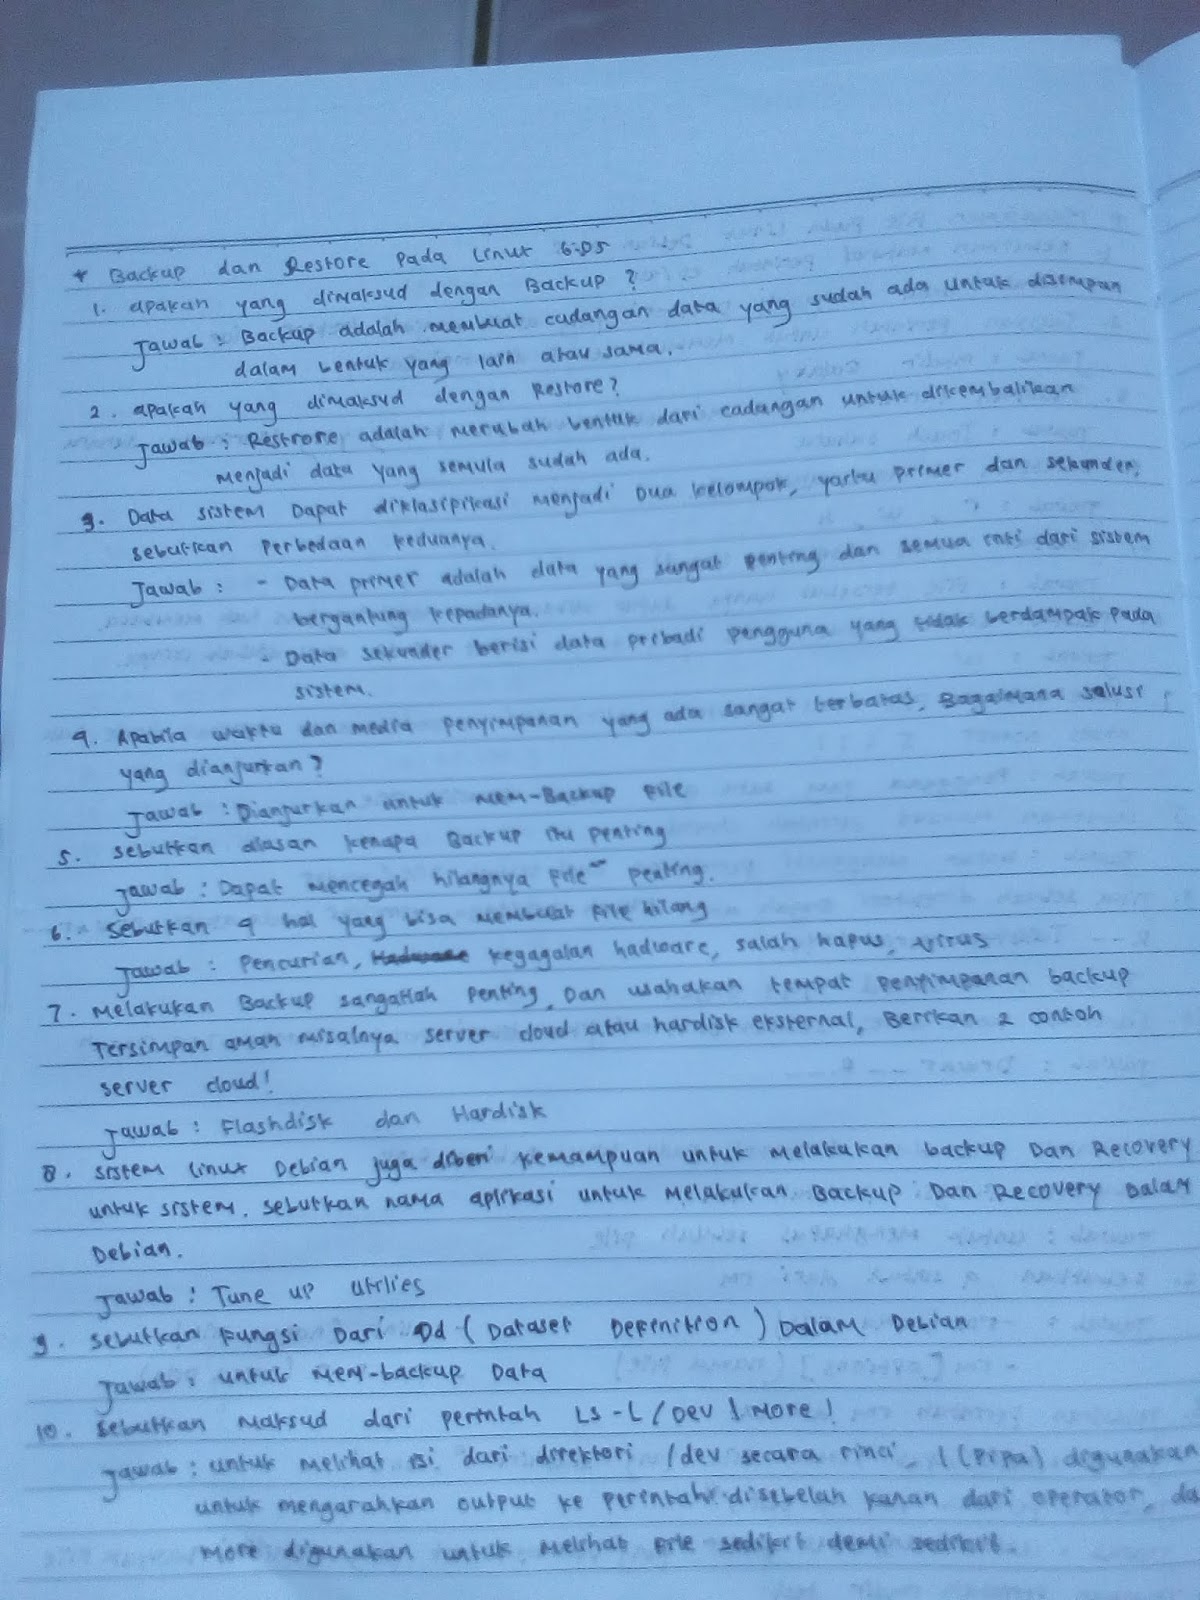 * Backup dan Restore pada Linux 6.05
1. apakah yang dimaksud dengan Backup ?
Jawab : Backup adalah membuat cadangan data yang sudah ada untuk disimpan
dalam bentuk yang lain atau sama.
2. apakah yang dimaksud dengan Restore?
Jawab : Restrore adalah merubah bentuk dari cadangan untuk dikembalikan
menjadi data yang semula sudah ada.
3. Data sistem Dapat diklasipikasi menjadi Dua kelompok, yaitu primer dan sekunder,
sebutkan Perbedaan keduanya.
Jawab : - Data primer adalah data yang sangat penting dan semua inti dari sistem
bergantung kepadanya.
- Data sekunder berisi data pribadi pengguna yang tidak berdampak pada
sistem.
4. Apabila waktu dan media penyimpanan yang ada sangat terbatas, Bagaimana solusi
yang dianjurkan?
Jawab : Dianjurkan untuk mem-Backup file
5. sebutkan alasan kenapa Backup itu penting
Jawab : Dapat mencegah hilangnya file penting.
6. Sebutkan 4 hal yang bisa membuat file hilang
Jawab : Pencurian, kegagalan hadware, salah hapus, virus
7. Melakukan Backup sangatlah penting, Dan usahakan tempat penyimpanan backup
Tersimpan aman misalnya server cloud atau hardisk eksternal, Berikan 2 contoh
server cloud!
Jawab : Flashdisk dan Hardisk
8. sistem linux Debian juga diberi kemampuan untuk melakukan backup Dan Recovery
untuk sistem. sebutkan nama aplikasi untuk melakukan Backup Dan Recovery Dalam
Debian.
Jawab : Tune up Utilies
9. sebutkan fungsi Dari Dd ( Dataset Definition ) Dalam Debian
Jawab : untuk mem-backup Data
10. sebutkan maksud dari perintah LS -L /Dev | More !
Jawab : untuk melihat isi dari direktori /dev secara rinci, | (pipa) digunakan
untuk mengarahkan output ke perintah disebelah kanan dari operator, da
More digunakan untuk melihat file sedikit demi sedikit.